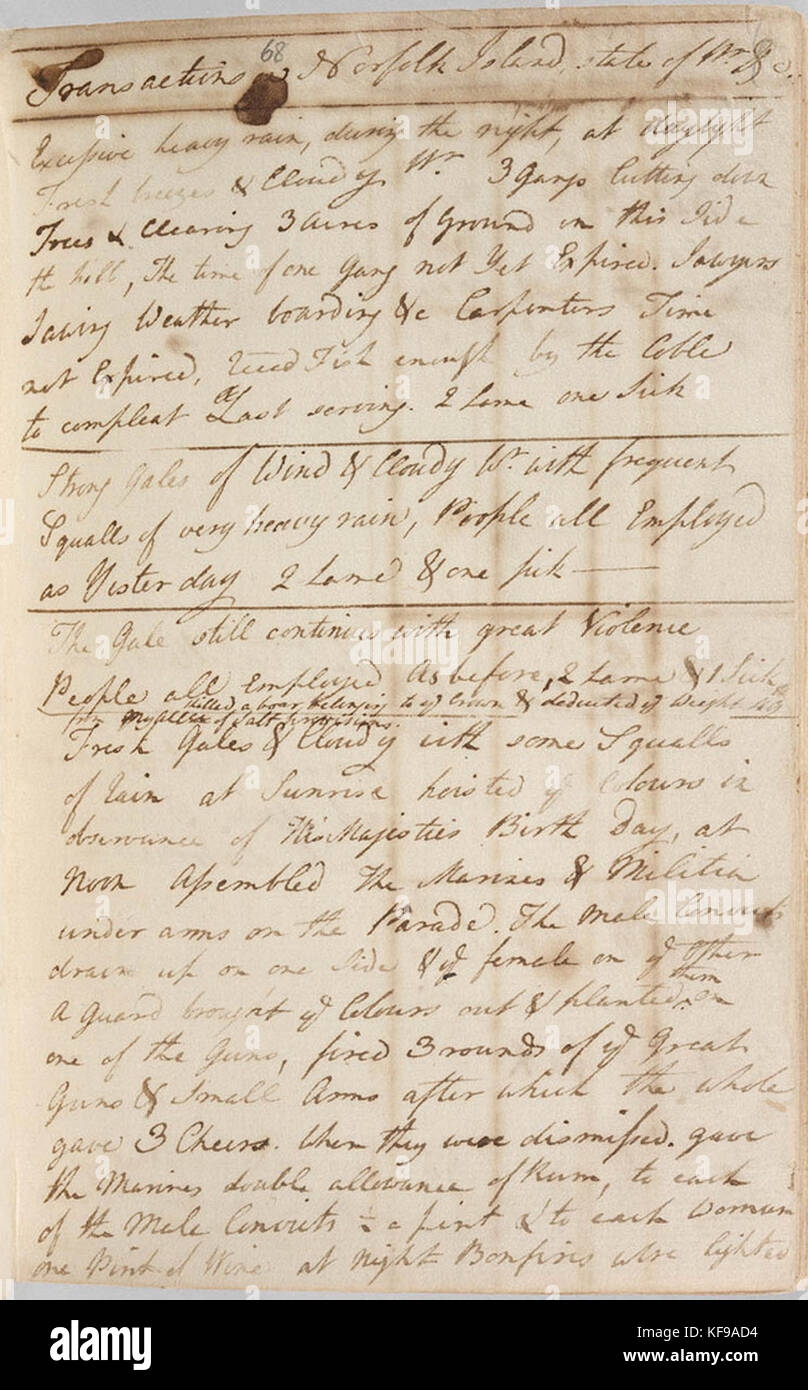 68
Transactions Norfolk Island, state of Wr. &c.
Excessive heavy rain, during the night, at daylight
Fresh breezes & Cloudy Wr 3 Gangs Cutting down
Trees & Clearing 3 acres of Ground on this Side
the hill, The time of one Gang not Yet Expired. Sawyers
Sawing Weather boarding &c Carpenters Time
not Expired, Fish enough by the Coble
to compleat ye Last serving. 2 Lame one Sick
Strong Gales of Wind & Cloudy Wr with frequent
Squalls of very heavy rain, People all Employed
as Yesterday 2 Lame & one sick
The Gale still continues with great Violence
People all Employed As before, 2 Lame & 1 Sick
killed a boar belonging to ye Crown & deducted ye Weight
from of Salt provisions.
Fresh Gales & Cloudy with some Squalls
of rain at Sunrise hoisted ye Colours in
observance of His Majesties Birth Day, at
Noon Assembled The Marines & Militia
under arms on the Parade. The Male Convicts
drawn up on one Side & ye female on ye other
A Guard brought ye Colours out & planted them on
one of the Guns, fired 3 rounds of ye Great
Guns & Small Arms after which the whole
gave 3 Cheers. When they were dismissed. gave
the Marines double allowance of Rum, to each
of the Male Convicts ½ a pint & to each Woman
one Pint of Wine at Night Bonfires were lighted
alamy
alamy
Image ID: KF9AD4
www.alamy.com